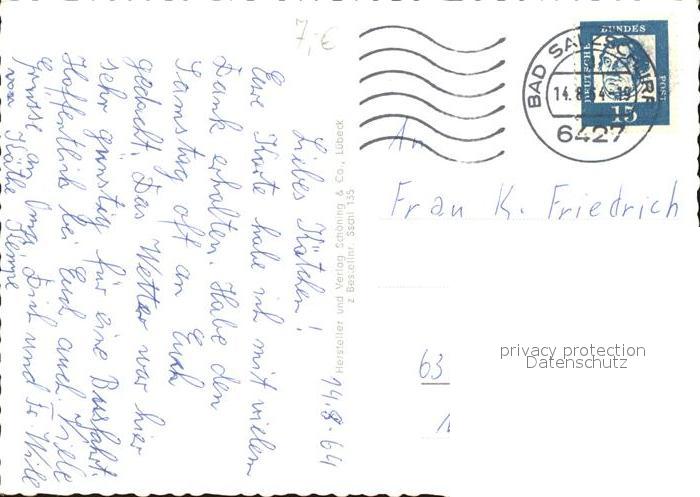 7,-€
14.8.64
Liebes Kätchen!
Eure Karte habe ich mit vielem
Dank erhalten. Habe den
Samstag oft an Euch
gedacht. Das Wetter war hier
sehr günstig für eine Busfahrt.
Hoffentlich bei Euch auch. Viele
Grüsse an Oma, Dich und Fr. Wille
von Käthe
Hersteller und Verlag Schöning & Co., Lübeck
z Bestellnr. Ssahl 135
BAD SALZSCHLIRF
14.8.64-19
6427
DEUTSCHE BUNDES POST
15
An
Frau K. Friedrich
63
privacy protection
Datenschutz